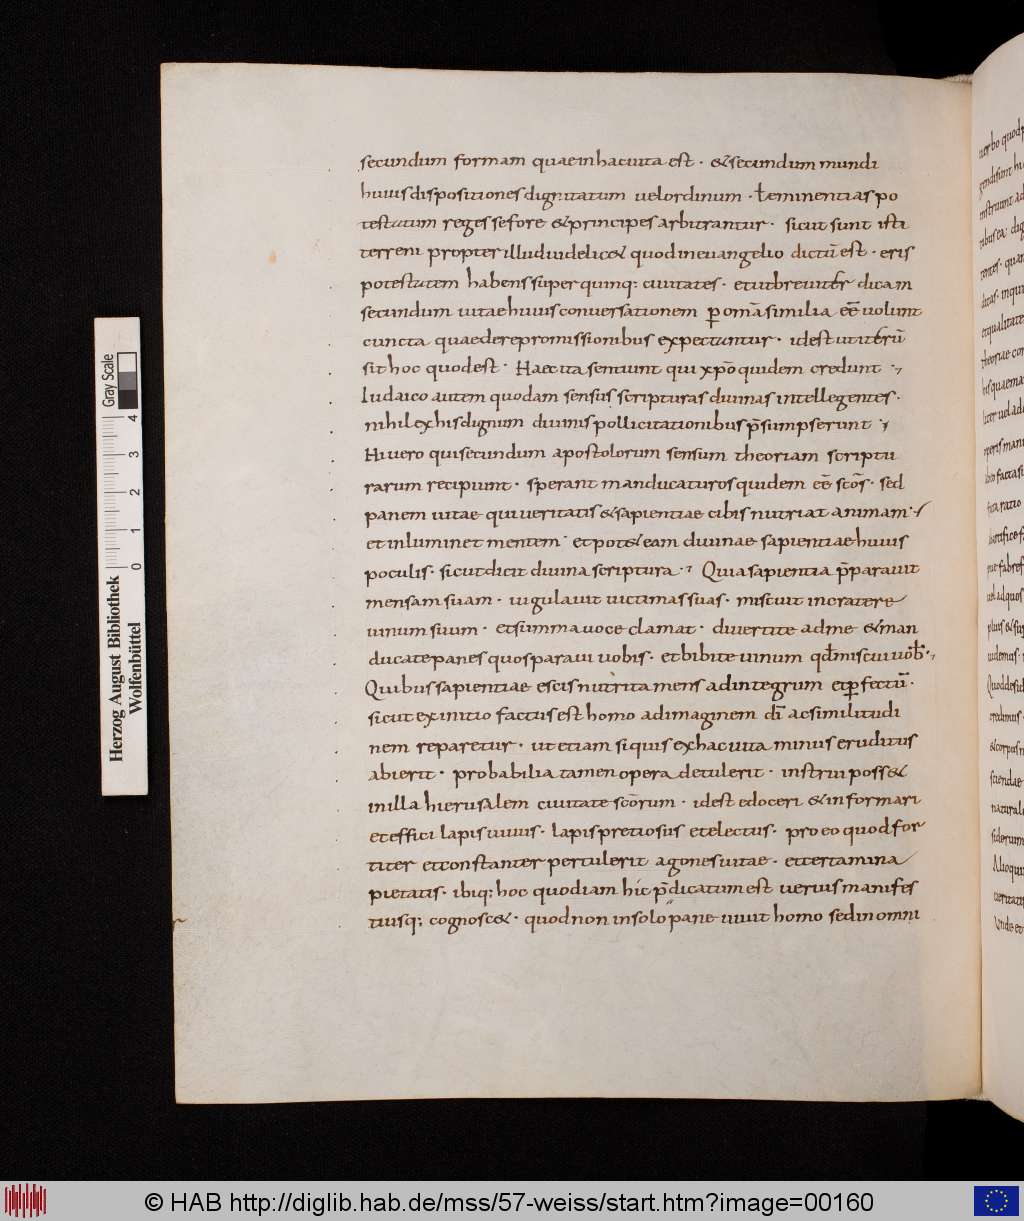 secundum formam quae in hac uita est · & secundum mundi
huius dispositiones dignitatum uel ordinum · ł eminentias po
testatum reges se fore & principes arbitrantur · sicut sunt isti
terreni propter illud uidelic& quod in euangelio dictū est · eris
potestatem habens super quinq; ciuitates · et ut breuiter dicam
secundum uitae huius conuersationem ꝑ omā similia eē uolunt
cuncta quae de repromissionibus expectantur · id est ut iterū
sit hoc quod est · Haec ita sentiunt qui xp̄o quidem credunt ·,
Iudaico autem quodam sensu scripturas diuinas intellegentes ·
nihil ex his dignum diuinis pollicitationibus p̄sumpserunt ·,
Hi uero qui secundum apostolorum sensum theoriam scriptu
rarum recipiunt · sperant manducaturos quidem eē scōs · sed
panem uitae qui ueritatis & sapientiae cibis nutriat animam ·,
et inluminet mentem · et pot& eam diuinae sapientiae huius
poculis · sicut dicit diuina scriptura ·, Quia sapientia p̄parauit
mensam suam · iugulauit uictimas suas · miscuit in cratere
uinum suum · et summa uoce clamat · diuertite ad me & man
ducate panes quos paraui uobis · et bibite uinum qđ miscui uoƀ ·,
Quibus sapientiae escis nutrita mens ad integrum et ꝑfectū ·
sicut ex initio factus est homo ad imaginem dī ac similitudi
nem reparetur · ut etiam si quis ex hac uita minus eruditus
abierit · probabilia tamen opera detulerit · instrui poss&
in illa hierusalem ciuitate scōrum · id est edoceri & informari
et effici lapis uiuus · lapis pretiosus et electus · pro eo quod for
titer et constanter pertulerit agones uitae · et certamina
pietatis · ibiq; hoc quod iam hic p̄dicatum est uerius manifes
tiusq; cognosc& · quod non in solo pane uiuit homo sed in omni
Gray Scale
0 1 2 3 4
Herzog August Bibliothek
Wolfenbüttel
© HAB http://diglib.hab.de/mss/57-weiss/start.htm?image=00160